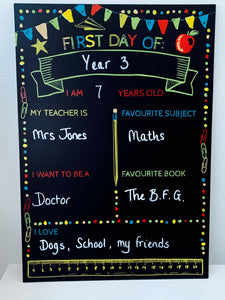 FIRST DAY OF:
Year 3
I AM 7 YEARS OLD
MY TEACHER IS
Mrs Jones
FAVOURITE SUBJECT
Maths
I WANT TO BE A
Doctor
FAVOURITE BOOK
The B.F.G.
I LOVE
Dogs, School, my friends